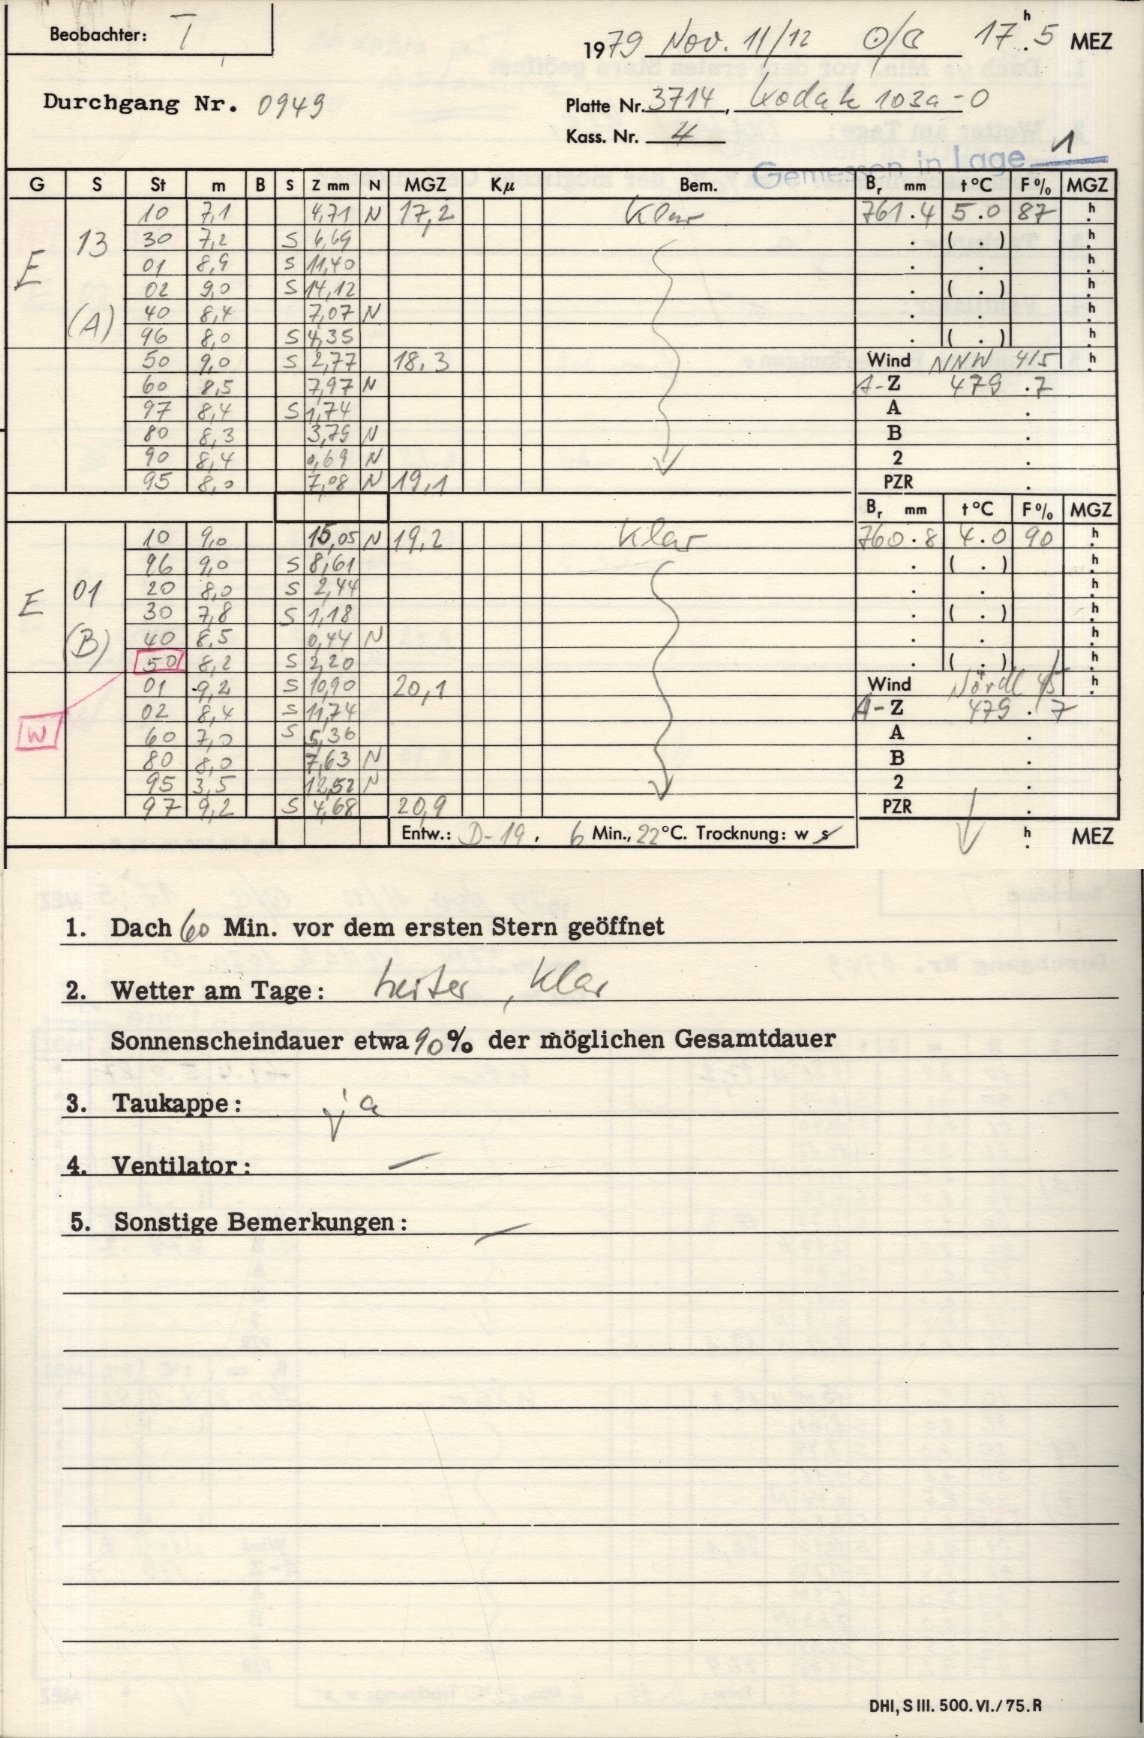 Beobachter: T
1979 Nov. 11/12 ⊙/☾ 17ʰ.5 MEZ
Durchgang Nr. 0949
Platte Nr. 3714, Kodak 103a-O
Kass. Nr. 4
Gemessen in Lage 1
G S St m B S Z mm N MGZ Kμ Bem. Bᵣ mm t°C F% MGZ
10 7,1 4,71 N 17,2 Klar 761.4 5.0 87 h
E 13 30 7,2 S 6,69 . ( . ) h
01 8,9 S 11,40 . . h
02 9,0 S 14,12 . ( . ) h
(A) 40 8,4 7,07 N . . h
96 8,0 S 4,35 . ( . ) h
50 9,0 S 2,77 18,3 Wind NNW 4/5 h
60 8,5 7,97 N A-Z 479.7
97 8,4 S 1,74 A .
80 8,3 3,79 N B .
90 8,4 0,69 N 2 .
95 8,0 7,08 N 19,1 PZR .
Bᵣ mm t°C F% MGZ
10 9,0 15,05 N 19,2 Klar 760.8 4.0 90 h
96 9,0 S 8,61 . ( . ) h
E 01 20 8,0 S 2,44 . . h
30 7,8 S 1,18 . ( . ) h
(B) 40 8,5 0,44 N . . h
50 8,2 S 2,20 . ( . ) h
01 9,2 S 10,90 20,1 Wind Nördl 4/5 h
W 02 8,4 S 11,74 A-Z 479.7
60 7,0 S 5,36 A .
80 8,0 7,63 N B .
95 3,5 12,52 N 2 .
97 9,2 S 4,68 20,9 PZR .
Entw.: D-19, 6 Min., 22°C. Trocknung: w s h. MEZ
1. Dach 60 Min. vor dem ersten Stern geöffnet
2. Wetter am Tage: heiter, klar
Sonnenscheindauer etwa 90% der möglichen Gesamtdauer
3. Taukappe: ja
4. Ventilator: —
5. Sonstige Bemerkungen: —
DHI, S III. 500. VI./75. R